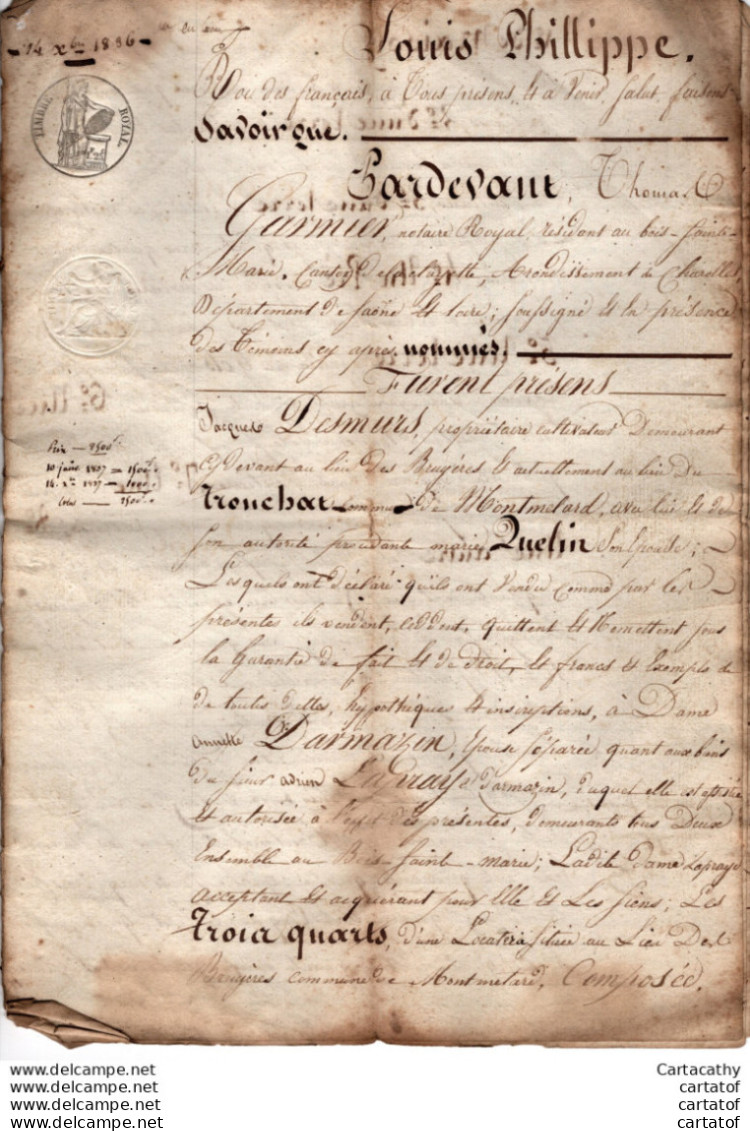 14 xbre 1836
Louis Phillippe.
Roi des français, à Tous présens, et à Venir, Salut, faisons
Savoir que.
TIMBRE ROYAL
Pardevant, Thomas
Garmier, notaire Royal, résidant au bois-Sainte-
Marie, Canton de la clayette, Arondissement de Charolles
Département de Saône et Loire; Soussigné et En présence
des témoins cy après nommés.
Furent présens
Jacques Desmurs, propriétaire cultivateur Demeurant
Cy devant au lieu des Bruyères et actuellement au lieu du
Tronchat commune de Montmelard, avec lui et de
Son autorité procédante marie Quelin Son Epouse;
Prix — 2500
10 1837 — 1500
14 xbre 1837 — 1000
2500
Lesquels ont déclaré qu'ils ont Vendu Comme par les
présentes ils vendent, cèdent, quittent et Remettent sous
la Garantie de fait et de droit, et francs et Exempts de
de toutes dettes, hypothèques et inscriptions, à Dame
Annette Darmazin, Epouse Séparée quant aux biens
du Sieur adrien Lapraye Darmazin, duquel elle est assistée
et autorisée à l'effet des présentes, demeurants tous Deux
Ensemble au Bois-Saint-marie; Ladite Dame Lapraye
acceptant et acquérant pour Elle et Les Siens; Les
Trois quarts, d'une Locaterie située au Lieu Des
Bruyères commune de Montmelard, Composée.
Cartacathy
cartatof
cartatof
cartatof